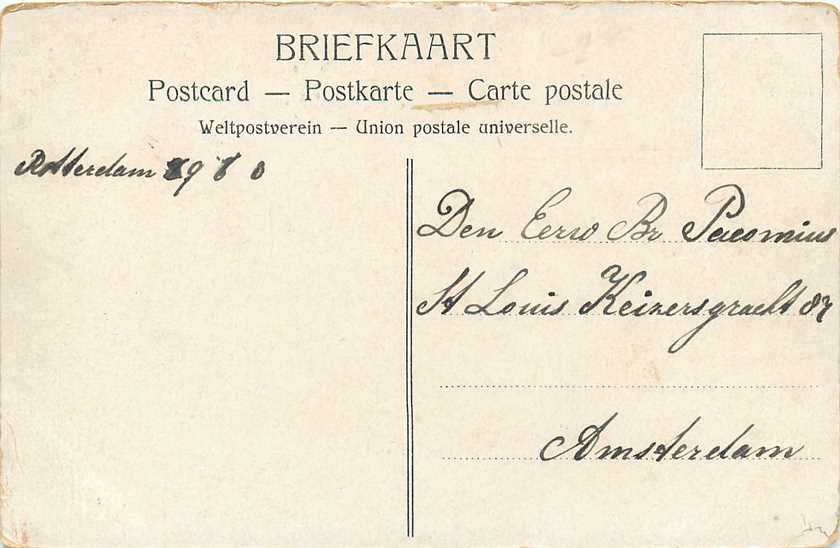 BRIEFKAART
Postcard — Postkarte — Carte postale
Weltpostverein — Union postale universelle.
Rotterdam
Den Eerw Br Pacomius
St Louis Keizersgracht 87
Amsterdam